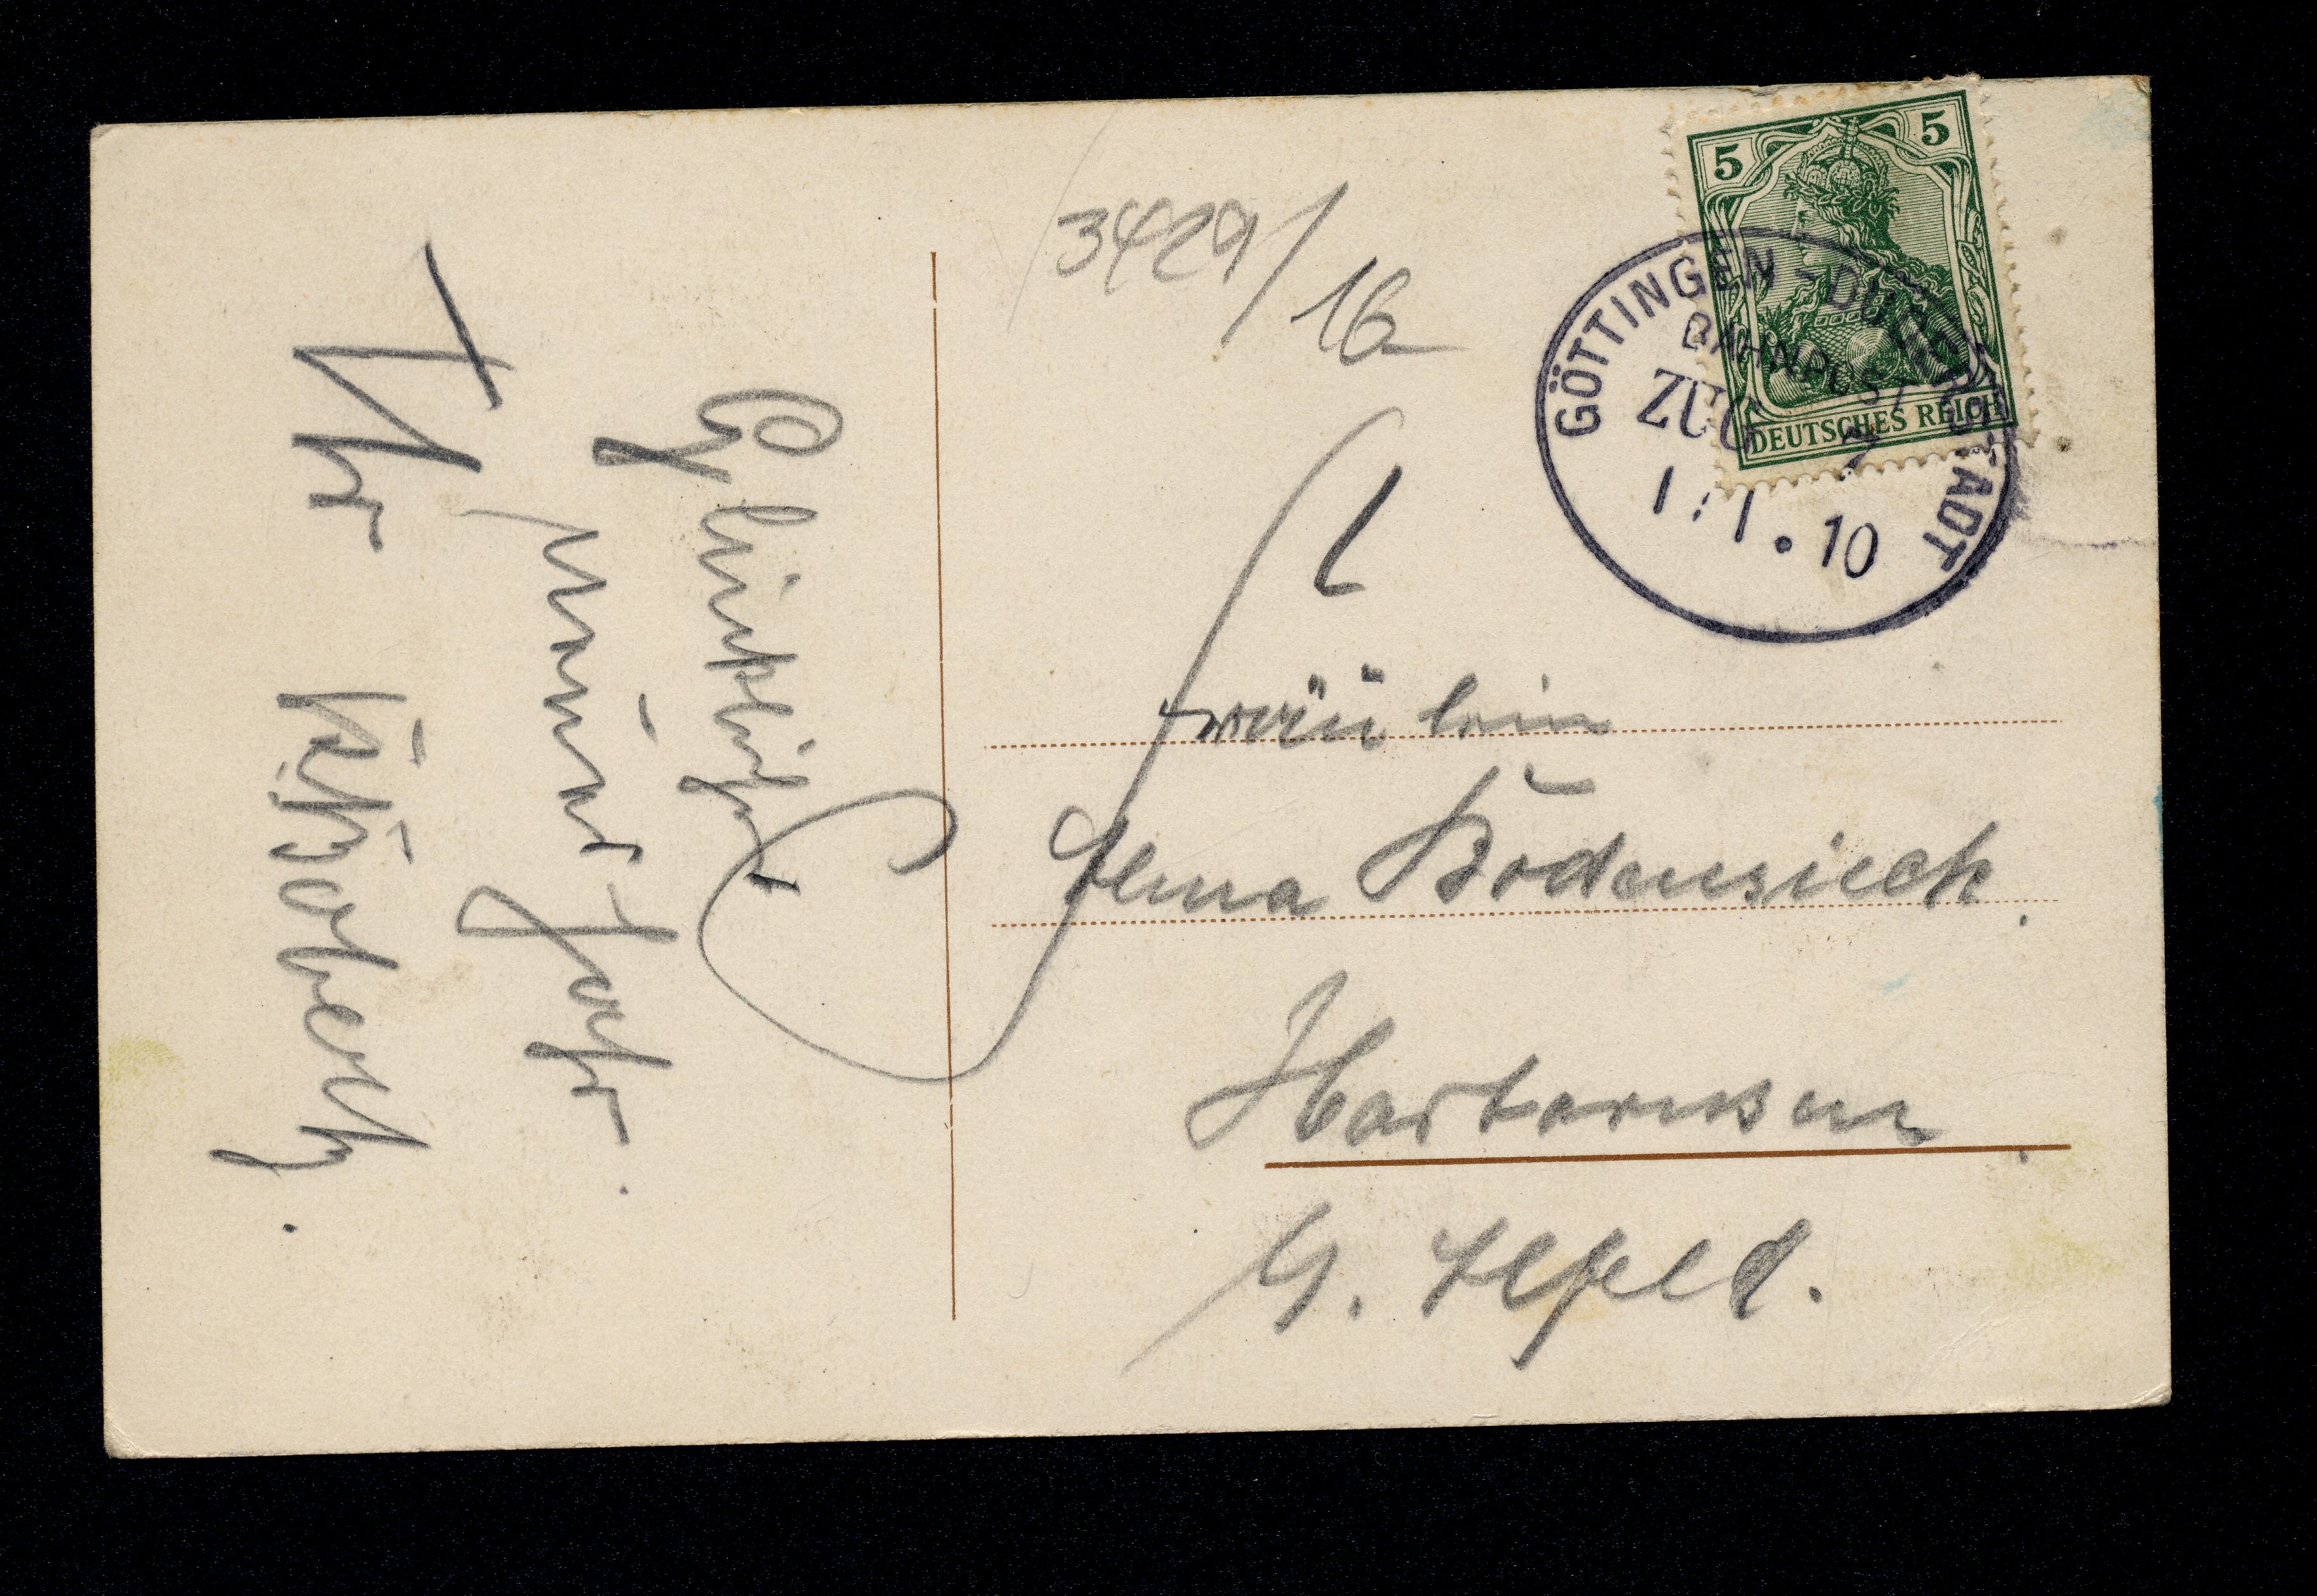 Glückliches
neues Jahr.
Ihr
3429/16
5 5
DEUTSCHES REICH
GÖTTINGEN - DUDERSTADT
BAHNPOST
ZUG
1.1.10
Fräulein
Bodensieck.
G. Ilfeld.